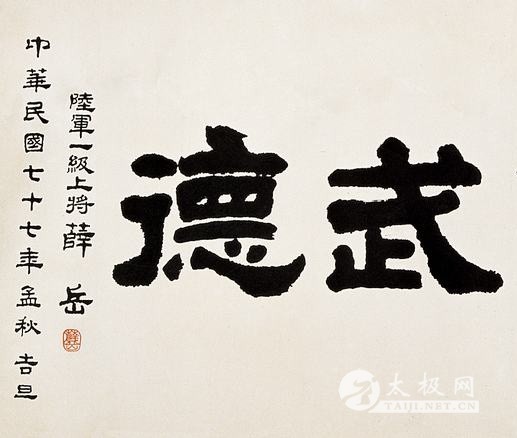 武德
陸軍一級上將薛岳
中華民國七十七年孟秋吉旦
太极网
TAIJI.NET.CN